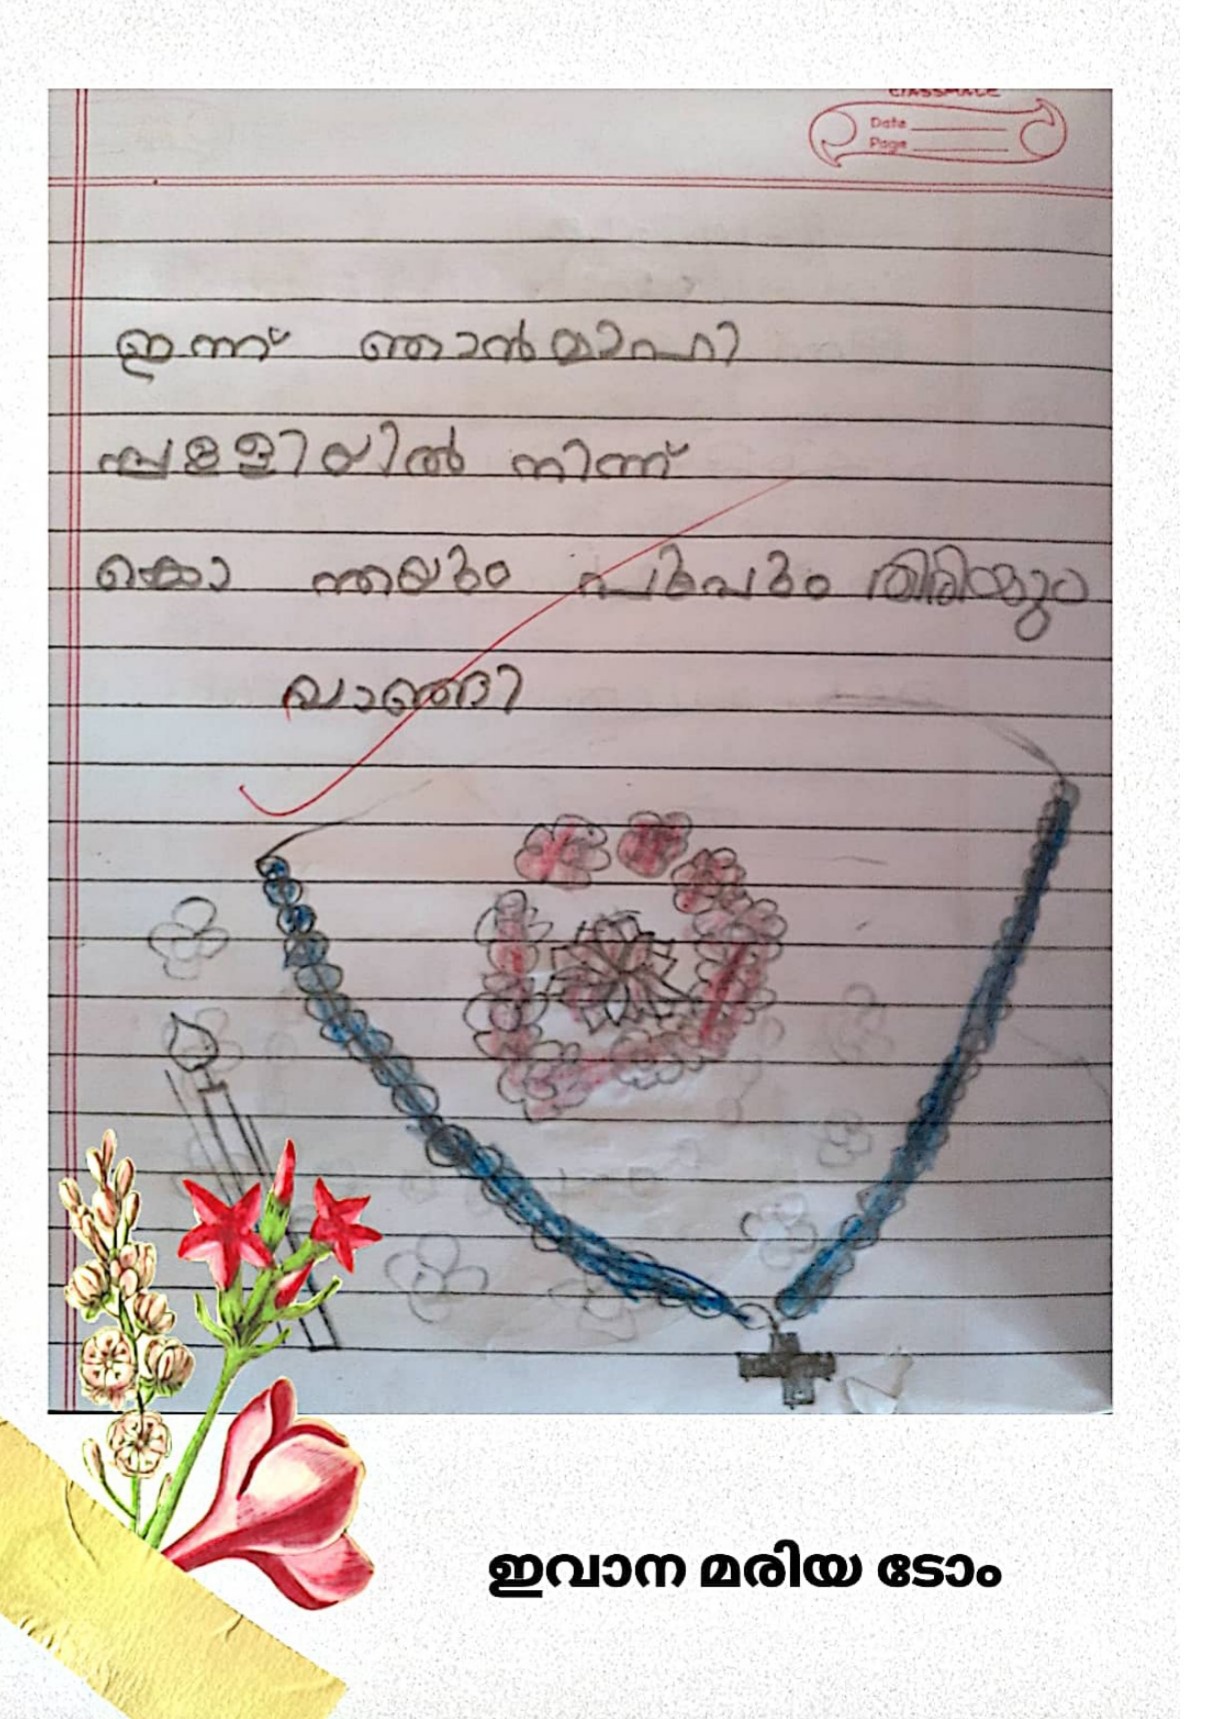 classmate
Date
Page
ഇന്ന് ഞാൻ മാഹി
പള്ളിയിൽ നിന്ന്
കൊ ന്തയും പൂവും തിരിയും
വാങ്ങി
ഇവാന മരിയ ടോം